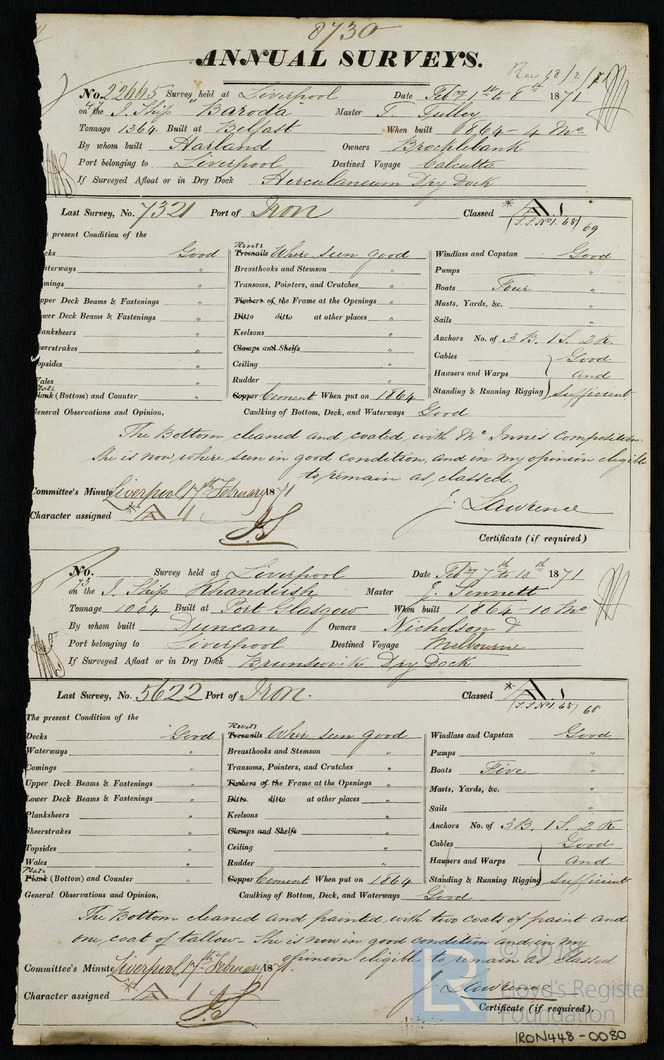 8730
ANNUAL SURVEYS.
Rec 18/2/71
No. 22665 Survey held at Liverpool Date Feby 1st to 6th 1871
on the I. Ship "Baroda" Master T. Tulley
Tonnage 1364 Built at Belfast When built 1864 - 4 Mo
By whom built Harland Owners Brocklebank
Port belonging to Liverpool Destined Voyage Calcutta
If Surveyed Afloat or in Dry Dock Herculaneum Dry Dock
Last Survey, No. 7321 Port of Iron Classed * A 1
(S.S. No 1. 68) 69
present Condition of the
cks Good Rivets Treenails Where seen good Windlass and Capstan Good
aterways " Breasthooks and Stemson " Pumps "
mings " Transoms, Pointers, and Crutches " Boats Four "
pper Deck Beams & Fastenings " Timbers of the Frame at the Openings " Masts, Yards, &c. "
wer Deck Beams & Fastenings " Ditto ditto at other places " Sails "
lanksheers " Keelsons " Anchors No. of 3 B. 1 S. 2 K.
eerstrakes " Clamps and Shelfs " Cables Good
opsides " Ceiling " Hawsers and Warps and
ales " Rudder " Standing & Running Rigging Sufficient
Plate Plank (Bottom) and Counter " Copper Cement When put on 1864
General Observations and Opinion, Caulking of Bottom, Deck, and Waterways Good
The Bottom cleaned and coated with Mc Innes Composition
She is now, where seen in good condition, and in my opinion eligible
to remain as, classed.
Committee's Minute Liverpool, 17th February 1871
Character assigned * A 1
J. Lawrence
Certificate (if required)
No. Survey held at Liverpool Date Feby 7th to 10th 1871
on the I. Ship Khandeish Master J. Sennett
Tonnage 1064 Built at Port Glasgow When built 1864 - 10 Mo
By whom built Duncan Owners Nicholson &
Port belonging to Liverpool Destined Voyage Melbourne
If Surveyed Afloat or in Dry Dock Brunswick Dry Dock
Last Survey, No. 5622 Port of Iron. Classed * A 1
(S.S. No 1. 68) 68
The present Condition of the
Decks Good Rivets Treenails Where seen good Windlass and Capstan Good
Waterways " Breasthooks and Stemson " Pumps "
Comings " Transoms, Pointers, and Crutches " Boats Five "
Upper Deck Beams & Fastenings " Timbers of the Frame at the Openings " Masts, Yards, &c. "
Lower Deck Beams & Fastenings " Ditto ditto at other places " Sails "
Planksheers " Keelsons " Anchors No. of 3 B. 1 S. 2 K
Sheerstrakes " Clamps and Shelfs " Cables Good
Topsides " Ceiling " Hawsers and Warps and
Wales " Rudder " Standing & Running Rigging Sufficient
Plate Plank (Bottom) and Counter " Copper Cement When put on 1864
General Observations and Opinion, Caulking of Bottom, Deck, and Waterways Good
The Bottom cleaned and painted, with two coats of paint and
one, coat of tallow - She is now in good condition and in my
opinion eligible to remain as classed
Committee's Minute Liverpool, 17th February 1871.
Character assigned * A 1
J. Lawrence
Certificate (if required).
LR
Lloyd's Register
Foundation
IRON448-0080